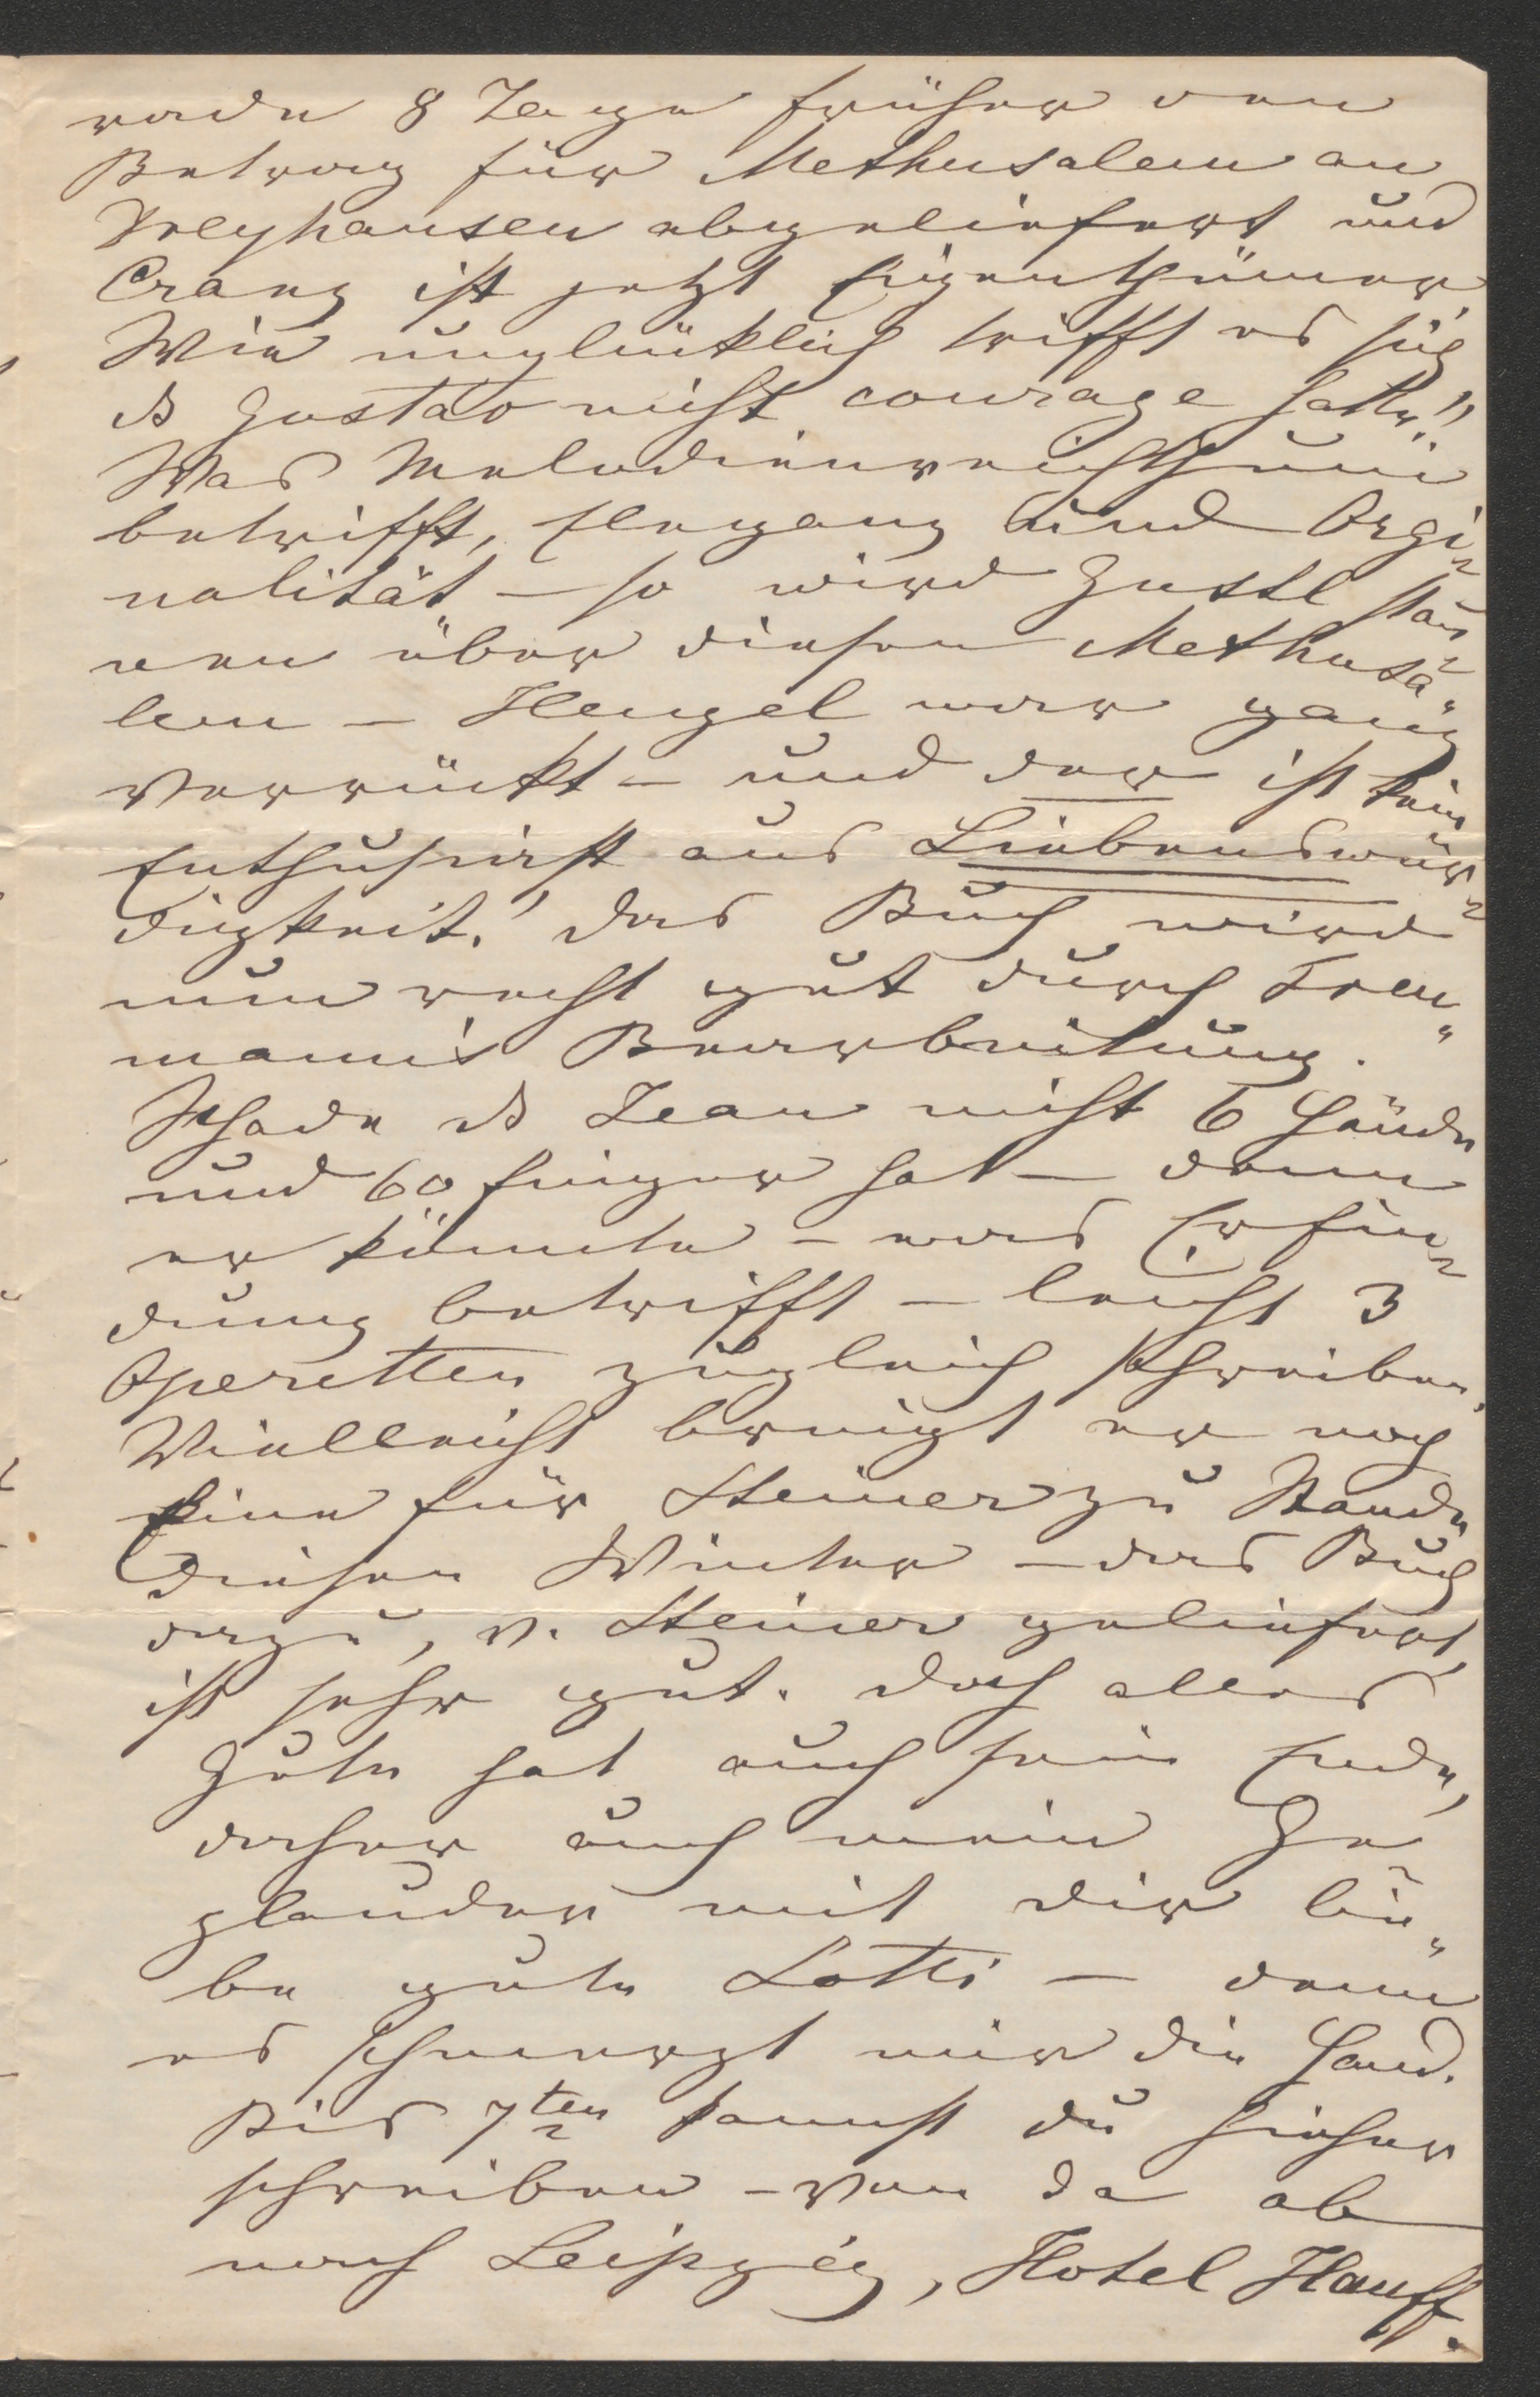 rade 8 Tage früher den
Betrag für Methusalem an
Dreyhausen abgeliefert und
Cranz ist jetzt Eigenthümer.
Wie unglücklich trifft es sich
ds Gustav nicht courage hatte!!
Was Melodienreichthum
betrifft, Eleganz und Orgi-
nalität – so wird Gustl stau-
nen über diesen Methusa-
lem – Hengel war ganz
verrückt – und der ist kein
Enthusiast aus Liebenswür-
digkeit! das Buch wird
nun recht gut durch Treu-
mann's Bearbeitung.
Schade ds Jean nicht 6 Hände
und 60 Finger hat – denn
er könnte – was Erfin-
dung betrifft – leicht 3
Operetten zugleich schreiben.
Vielleicht bringt er noch
Eine für Steiner zu Stande
diesen Winter – das Buch
dazu, v. Steiner geliefert,
ist sehr gut. doch alles
Gute hat auch sein Ende,
daher auch mein Ge
plauder mit dir lie-
be gute Lotti – denn
es schmerzt mir die Hand.
Bis 7ten kannst du hieher
schreiben – von da ab
nach Leipzig, Hotel Hauff.